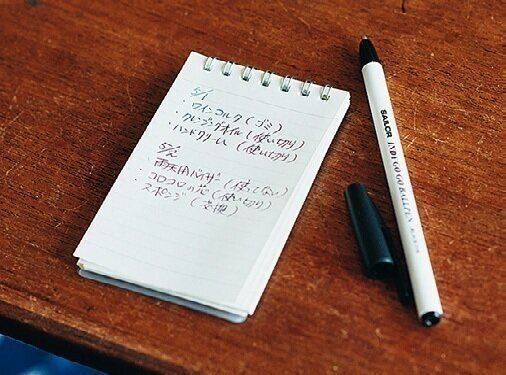 5/1
・ワインコルク(ゴミ)
・クレンジングオイル(使い切り)
・ハンドクリーム(使い切り)
5/2
・雨天用バイザー(使ってない)
・コロコロの芯(使い切り)
スポンジ(交換)
SAILOR
INDI GO GO BALLPEN